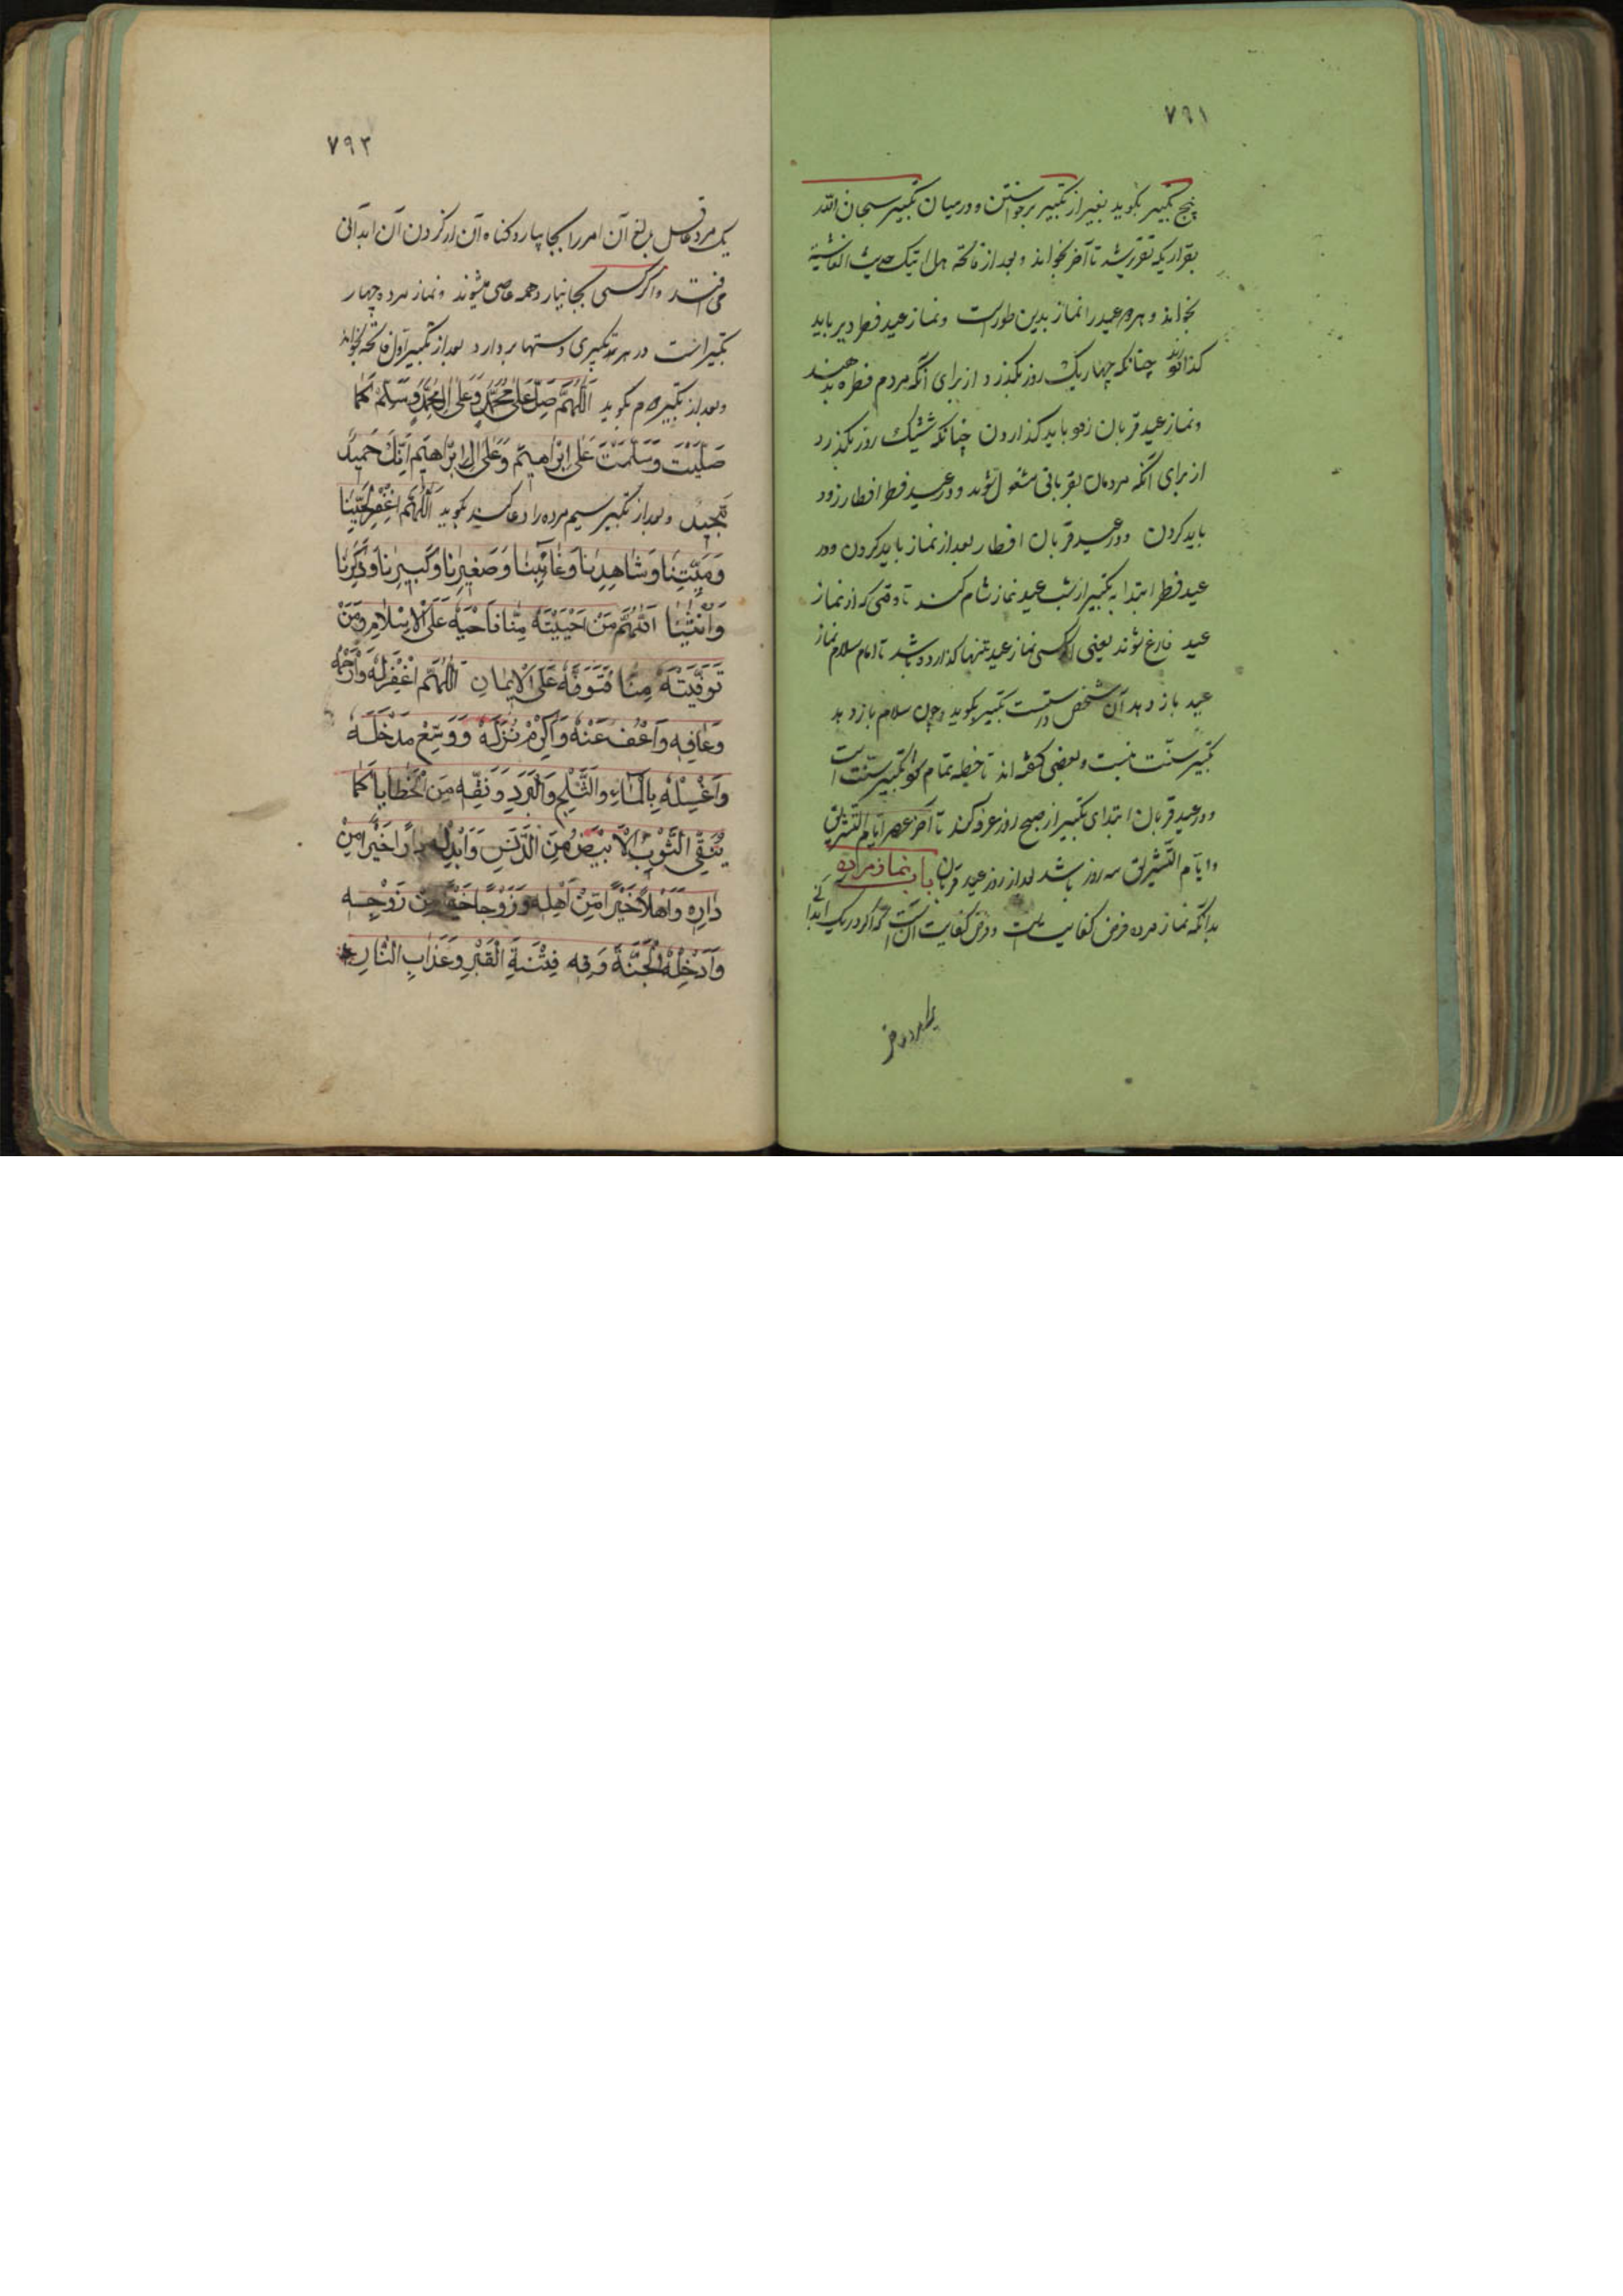 ٧٩١
پنج تکبیر بگوید بغیر از تکبیر برخواستن و در میان تکبیر سبحان الله
بقراریکه تقریر شد تا آخر بخواند و بعد از فاتحه هل اتیک حدیث الغاشیة
بخواند و هر دو عید را نماز بدین طورست و نماز عید فطر دیر باید
چنانکه چهار یک روز بگذرد از برای آنکه مردم فطره بدهند
و نماز عید قربان زود باید گذاردن چنانکه ششیک روز بگذرد
از برای آنکه مردمان بقربانی مشغول شوند و در عید فطر افطار زود
باید کردن و در عید قربان افطار بعد از نماز باید کردن و در
عید فطر ابتدا به تکبیر از شب عید نماز شام کنند تا وقتی که از نماز
عید فارغ شوند یعنی اگر کسی نماز عید تنها گذارده باشد تا امام سلام نماز
عید باز دهد آن شخص را سنتست تکبیر بگوید و چون سلام باز دهد
تکبیر سنّت نیست و بعضی گفته اند تا خطبه تمام تکبیر سنّت است
و در عید قربان ابتدای تکبیر از صبح روز عرفه کند تا آخر عصر ایام التشریق
و ایّام التّشریق سه روز باشد بعد از روز عید قربان باب نماز مرده
بدانکه نماز مرده فرض کفایست و فرض کفایت آن است که اگر در یک
٧٩٢
یک مرد عاقل بالغ آن امر را بجا بیارد گناه آن از گردن آن
می افتد و اگر کسی بجا نیارد همه عاصی میشوند و نماز مرده چهار
تکبیر است در هر تکبیری دستها بردارد بعد از تکبیر اوّل فاتحه بخواند
و بعد از تکبیر دوم بگوید اَللّٰهُمَّ صَلِّ عَلٰی مُحَمَّدٍ وَعَلٰی اٰلِ مُحَمَّدٍ وَسَلِّمْ كَمٰا
صَلَّيْتَ وَسَلَّمْتَ عَلٰى اِبْرٰاهِيْمَ وَعَلٰى اٰلِ اِبْرٰاهِيْمَ اِنَّكَ حَمِيْدٌ
مَجِيْدٌ و بعد از تکبیر سیم مرده را دعا کند بگوید اَللّٰهُمَّ اغْفِرْ لِحَيِّنٰا
وَمَيِّتِنٰا وَشٰاهِدِنٰا وَغٰائِبِنٰا وَصَغِيْرِنٰا وَكَبِيْرِنٰا وَذَكَرِنٰا
وَاُنْثٰيٰنٰا اَللّٰهُمَّ مَنْ اَحْيَيْتَهُ مِنّٰا فَاَحْيِهِ عَلَى الْاِسْلٰامِ وَمَنْ
تَوَفَّيْتَهُ مِنّٰا فَتَوَفَّهُ عَلَى الْاِيْمٰانِ اَللّٰهُمَّ اغْفِرْ لَهُ وَارْحَمْهُ
وَعٰافِهِ وَاعْفُ عَنْهُ وَاَكْرِمْ نُزُلَهُ وَوَسِّعْ مَدْخَلَهُ
وَاغْسِلْهُ بِالْمٰاءِ وَالثَّلْجِ وَالْبَرَدِ وَنَقِّهِ مِنَ الْخَطٰايٰا كَمٰا
يُنَقَّى الثَّوْبُ الْاَبْيَضُ مِنَ الدَّنَسِ وَاَبْدِلْهُ دٰارًا خَيْرًا مِنْ
دٰارِهِ وَاَهْلًا خَيْرًا مِنْ اَهْلِهِ وَزَوْجًا خَيْرًا مِنْ زَوْجِهِ
وَاَدْخِلْهُ الْجَنَّةَ وَقِهِ فِتْنَةَ الْقَبْرِ وَعَذٰابِ النّٰارِ